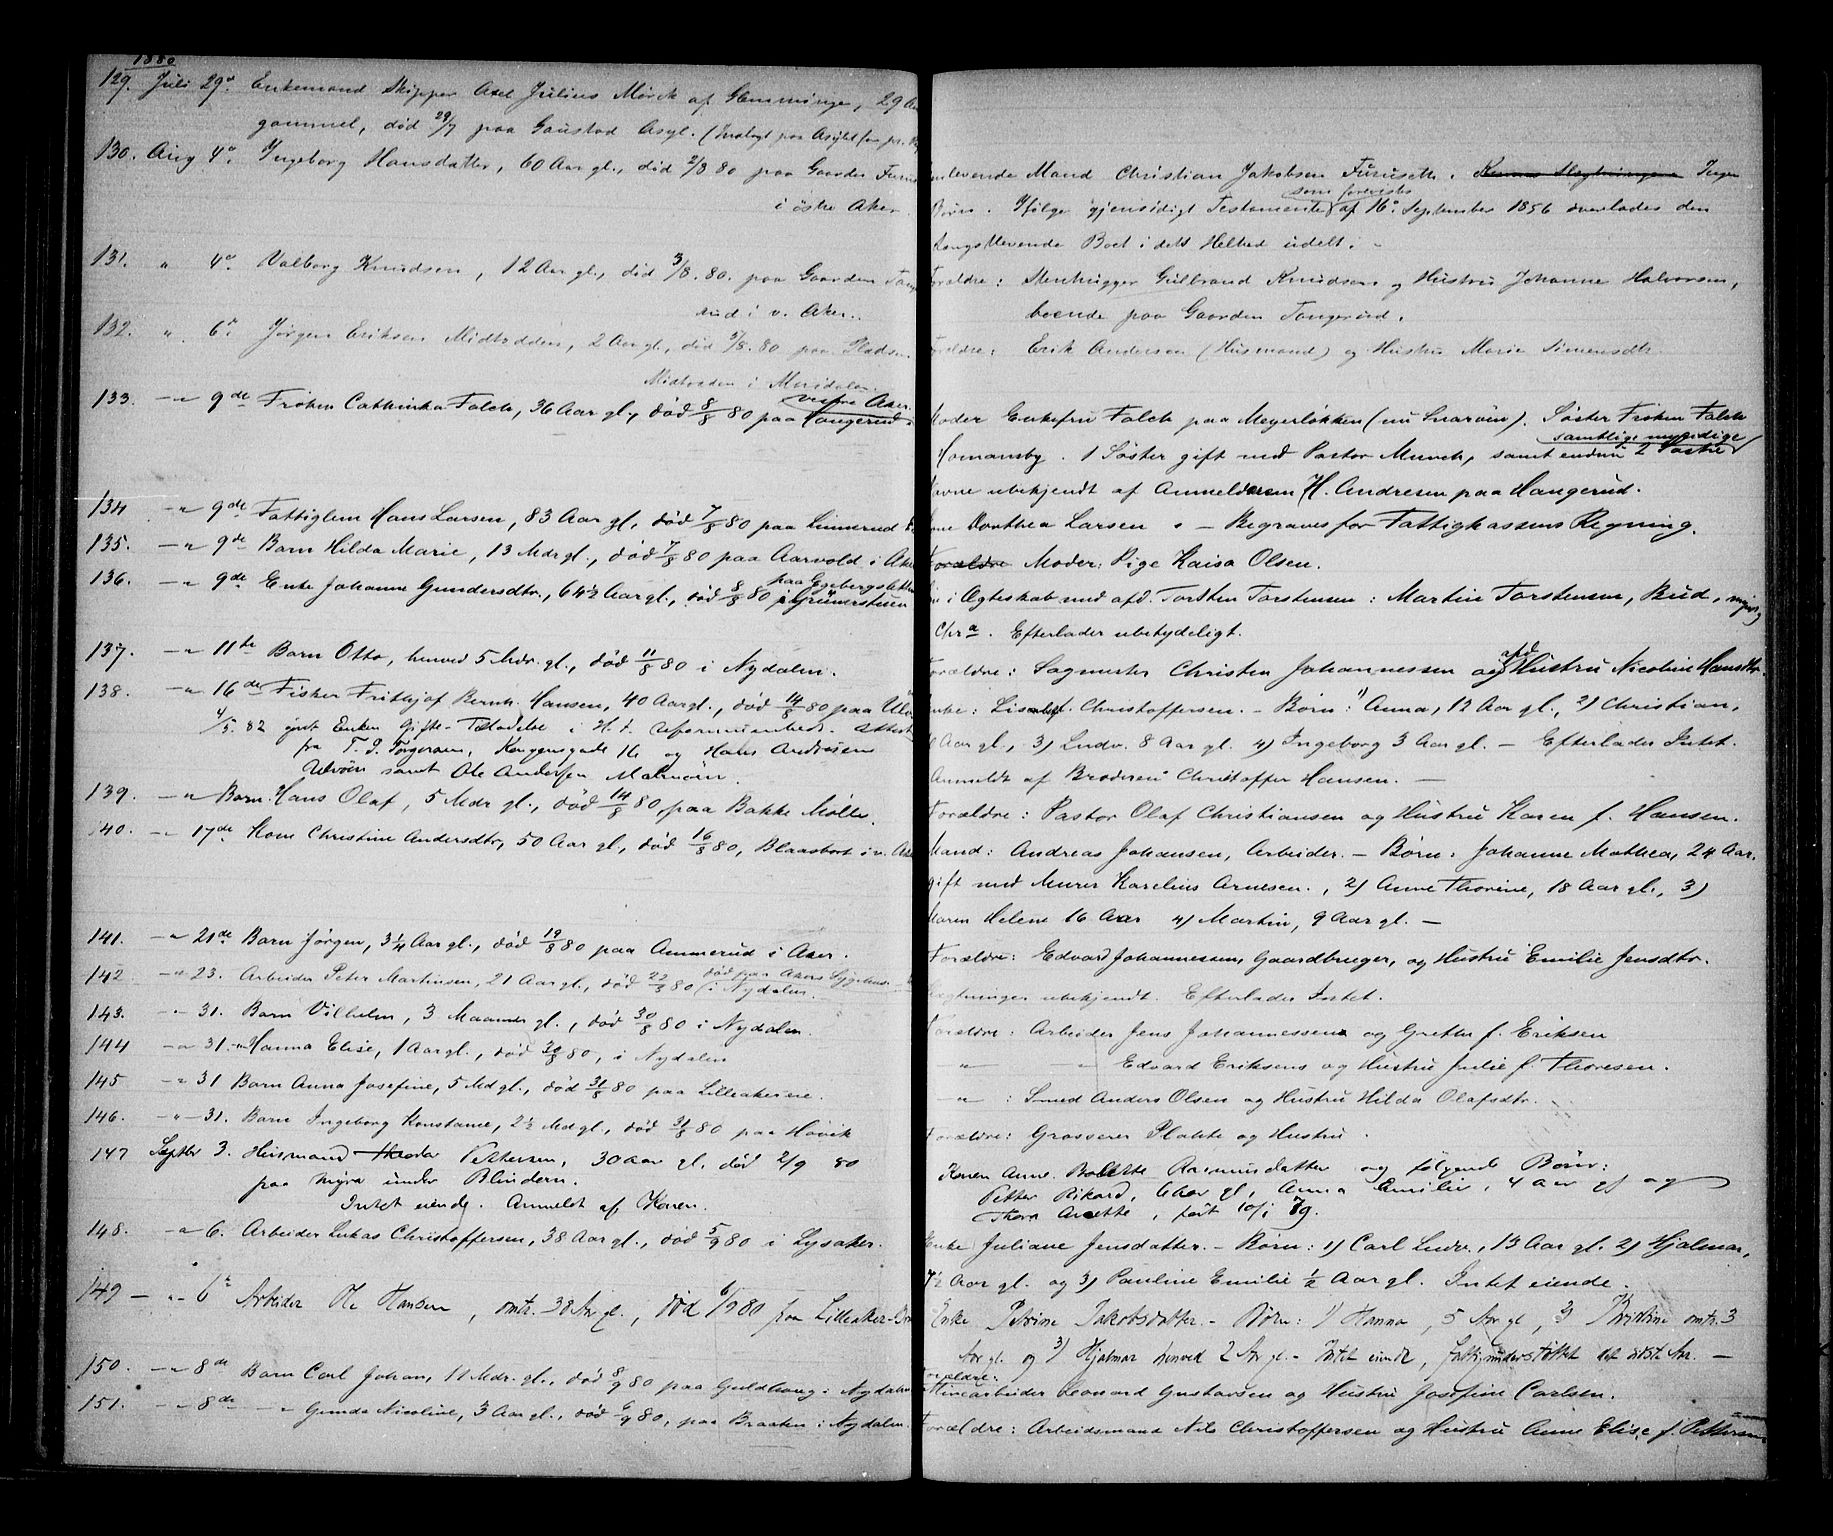 1880
129. Juli 29de Enkemand Skipper Axel Julius Mørch af Glemminge, 29 Aar
gammel, død 29/7 paa Gaustad Asyl.
130. Aug 4de Ingeborg Hansdatter, 60 Aar gl., død 2/8 80 paa Gaarden Furus
i østre Aker.
131. " 4de Valborg Knudsen, 12 Aar gl., død 3/8. 80. paa Gaarden Tang
rud i v. Aker.
132. " 6te Jørgen Eriksen Midtodden, 2 Aar gl., død 5/8. 80 paa Pladsen
Midtodden i Maridalen.
133. - " 9de Frøken Cathinka Falch, 36 Aar gl., død 8/8 80 paa Haugerud i
vestre Aker
134 - " 9de Fattiglem Hans Larsen, 83 Aar gl., død 7/8 80 paa Linnerud
135. - " 9de Barn Hilda Marie, 13 Mdr gl., død 7/8 80 paa Aarvold i Aker
136. - " 9de Enke Johanne Gundersdtr., 64½ Aar gl., død 8/8 80 i Grünerstuen
137. - " 11te Barn Otto, henved 5 Mdr. gl., død 11/8 80 i Nydalen.
138. - " 16de Fisker Frithjof Bernh. Hansen, 40 Aar gl., død 14/8 80 paa Ulv
4/5. 82 givt Enken Gifte-Tilladelse i H. t. Uformuenheds-Attest
fra T. J. Torgersen, Kongensgade 16 og Hans Andresen
Ulvøen samt Ole Andersen Malmøen.
139. - " Barn Hans Olaf, 5 Mdr gl., død 14/8 80, paa Bakke Mølle.
140. - " 17de Kone Christine Andersdtr, 50 Aar gl., død 16/8 80, Blaasbort i v. Aker
141. - " 21de Barn Jørgen, 3¼ Aar gl., død 19/8 80 paa Ammerud i Aker.
142 - " 23. Arbeider Peter Martinsen, 21 Aar gl., død 22/8 80 (i Nydalen.
død paa Akers Sygehus
143. - " 31. Barn Vilhelm, 3 Maaneder gl., død 30/8 80 i Nydalen.
144 - " 31. " Hanna Elise, 1 Aar gl., død 30/8 80, i Nydalen
145 - " 31 Barn Anna Josefine, 5 Md gl., død 31/8 80 paa Lilleakerene.
146. - " - 31. Barn Ingeborg Konstance, 2½ Md gl., død 31/8 80 paa Høvik
147 Septbr 3. Husmand Pettersen, 30 Aar gl. død 2/9 80
paa Myra under Blindern.
Intet eiende. Anmeldt af Konen.
148. - " 6. Arbeider Lukas Christoffersen, 38 Aar gl., død 5/9 80 i Lysaker.
149 - " - 6te Arbeider Ole Hansen, omtr. 38 Aar gl., død 6/9 80 paa Lilleaker-Br
150. - " 8de Barn Carl Johan, 11 Mdr. gl., død 8/9 80 paa Guldhaug i Nydalen
151. - " 8de - " Gunda Nicoline, 3 Aar gl., død 6/9 80, paa Braaten i Nydalen.
enlevende Mand Christian Jakobsen Furuseth. Ingen
Børn. Ifølge gjensidigt Testamente som forevistes af 16de September 1856 overlades den
Længstlevende Boet i dets Helhed udelt. -
Forældre: Stenhugger Gulbrand Knudsen og Hustru Johanne Halvorsen,
boende paa Gaarden Tangerud.
Forældre: Erik Andersen (Husmand) og Hustru Marie Simensdtr.
Moder Enkefru Falch paa Meyerløkken (nu Snarøen). Søster Frøken Falch
Homansby. 1 Søster gift med Pastor Munch, samt endnu 2 Søstre samtlige myndige
Navne ubekjendt af Anmelderen H. Andresen paa Haugerud.
Kone Dorthea Larsen. - Begraves for Fattigkassens Regning.
Forældre Moder: Pige Kaisa Olsen.
i Ægteskab med afd. Torsten Torstensen: Martin Torstensen, Bud, myndig
Chra. Efterlader ubetydeligt.
Forældre: Sagmester Christen Johannessen og afd Hustru Nicoline Hansdtr.
Enke: Christoffersen. - Børn: 1) Anna, 12 Aar gl., 2) Christian,
Aar gl., 3) Ludv. 8 Aar gl. 4) Ingeborg 3 Aar gl. - Efterlader Intet.
Anmeldt af Broderen Christoffer Hansen. -
Forældre: Pastor Olaf Christiansen og Hustru Karen f. Hansen.
Mand: Andreas Johansen, Arbeider. - Børn: Johanne Mathea, 24 Aar.
gift med Murer Karelius Arnesen., 2) Anne Thorine, 18 Aar gl., 3)
Maren Helene 16 Aar 4) Martin, 9 Aar gl. -
Forældre: Edvard Johannessen, Gaardbruger, og Hustru Emilie Jensdtr.
Slægtninger ubekjendt. Efterlader Intet.
Forældre: Arbeider Jens Johannessen og Grethe f. Eriksen
- " - - " Edvard Eriksens og Hustru Julie f. Thoresen.
- " - : Smed Anders Olsen og Hustru Hilda Olafsdtr.
Forældre: Grosserer Plahte og Hustru.
Konen Anne Bolette Rasmusdatter og følgende Børn:
Petter Rikard, 6 Aar gl, Anna Emilie, 4 Aar gl og
Thora Anette, født 10/1 79.
Enke Juliane Jensdatter. - Børn: 1) Carl Ludv., 13 Aar gl. 2) Hjalmar,
7½ Aar gl. og 3) Pauline Emilie ½ Aar gl. Intet eiende.
Enke Petrine Jakobsdatter. - Børn: 1) Hanna, 5 Aar gl, 2) Kristine omtr. 3
Aar gl. og 3) Hjalmar henved 2 Aar gl. - Intet eiende, fattigunderstøttet det sidste Aar. -
Forældre:
Minearbeider Leonard Gustavsen og Hustru Josefine Carlsen.
Forældre: Arbeidsmand Nils Christoffersen og Hustru Anne Elise f. Pettersen